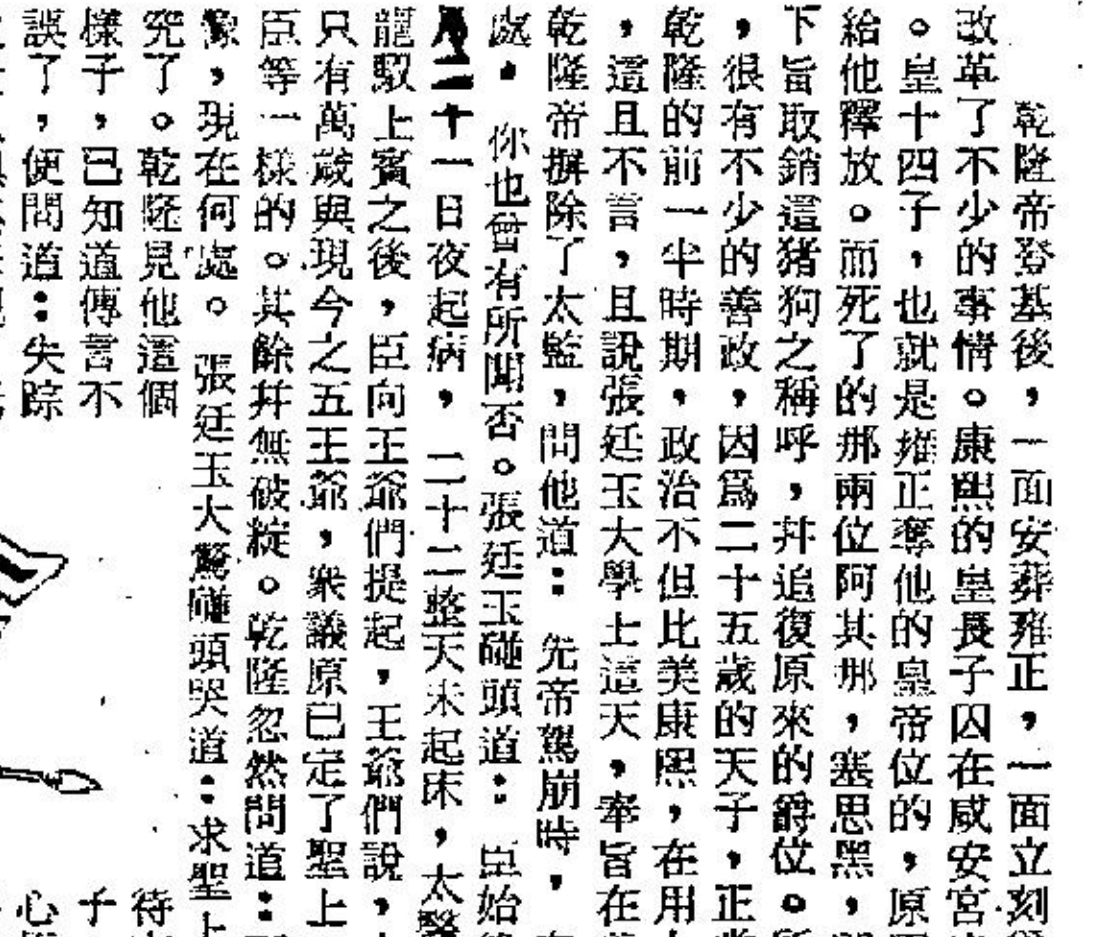 乾隆帝登基後，一面安葬雍正，一面立刻
改革了不少的事情。康熙的皇長子囚在咸安宮
。皇十四子，也就是雍正奪他的皇帝位的，原
給他釋放。而死了的那兩位阿其那，塞思黑，
下旨取銷這猪狗之稱呼，幷追復原來的爵位。
，很有不少的善政，因爲二十五歲的天子，正
乾隆的前一半時期，政治不但比美康熙，在用
，這且不言，且說張廷玉大學士這天，奉旨在
乾隆帝摒除了太監，問他道：先帝駕崩時，
處．你也曾有所聞否。張廷玉碰頭道：臣始
月二十一日夜起病，二十二整天未起床，太醫
龍馭上賓之後，臣向王爺們提起，王爺們說，
只有萬歲與現今之五王爺，衆議原已定了聖上
臣等一樣的。其餘幷無破綻。乾隆忽然問道：
像，現在何處。張廷玉大驚碰頭哭道：求聖上
究了。乾隆見他這個
待
樣子，已知道傳言不
千
誤了，便問道：失踪
心